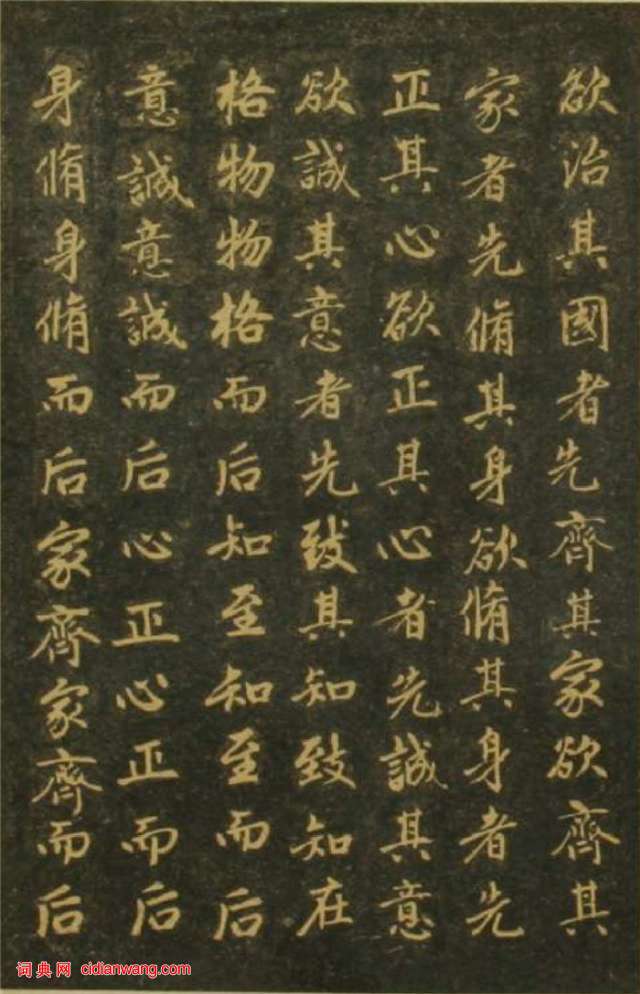 欲治其國者先齊其家欲齊其
家者先脩其身欲脩其身者先
正其心欲正其心者先誠其意
欲誠其意者先致其知致知在
格物物格而后知至知至而后
意誠意誠而后心正心正而后
身脩身脩而后家齊家齊而后
词典网 cidianwang.com